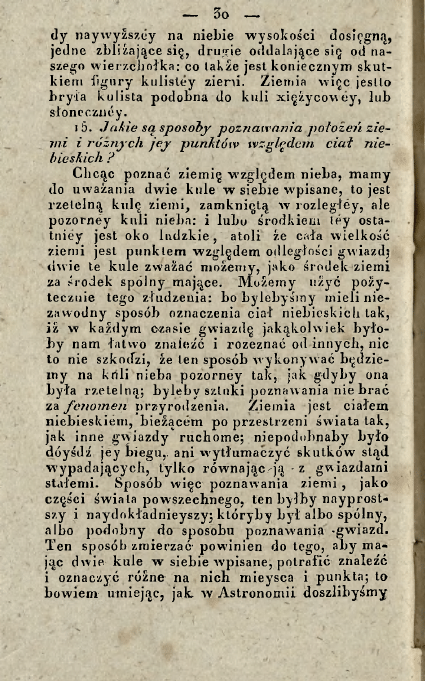 — 30 —
dy naywyższéy na niebie wysokości dosięgną,
jedne zbliżające się, drugie oddalające się od na-
szego wierzchołka: co także jest koniecznym skut-
kiem figury kulistéy ziemi. Ziemia więc jestto
bryła kulista podobna do kuli xiężycowéy, lub
słonecznéy.
15. Jakie są sposoby poznawania położeń zie-
mi i różnych jey punktów względem ciał nie-
bieskich?
Chcąc poznać ziemię względem nieba, mamy
do uważania dwie kule w siebie wpisane, to jest
rzetelną kulę ziemi, zamkniętą w rozległéy, ale
pozorney kuli nieba: i lubo środkiem téy osta-
tniéy jest oko ludzkie, atoli że cała wielkość
ziemi jest punktem względem odległości gwiazd;
dwie te kule zważać możemy, jako środek ziemi
za środek spólny mające. Możemy użyć poży-
tecznie tego złudzenia: bo bylebyśmy mieli nie-
zawodny sposób oznaczenia ciał niebieskich tak,
iż w każdym czasie gwiazdę jakąkolwiek było-
by nam łatwo znaleźć i rozeznać od innych, nic
to nie szkodzi, że ten sposób wykonywać będzie-
my na kuli nieba pozorney tak, jak gdyby ona
była rzetelną; byleby sztuki poznawania nie brać
za fenomen przyrodzenia. Ziemia jest ciałem
niebieskiém, bieżącém po przestrzeni świata tak,
jak inne gwiazdy ruchome; niepodobnaby było
dóyśdź jey biegu, ani wytłumaczyć skutków stąd
wypadających, tylko równając ją z gwiazdami
stałemi. Sposób więc poznawania ziemi, jako
części świata powszechnego, ten byłby nayprost-
szy i naydokładnieyszy; któryby był albo spólny,
albo podobny do sposobu poznawania gwiazd.
Ten sposób zmierzać powinien do tego, aby ma-
jąc dwie kule w siebie wpisane, potrafić znaleźć
i oznaczyć różne na nich mieysca i punkta; to
bowiem umiejąc, jak w Astronomii doszlibyśmy